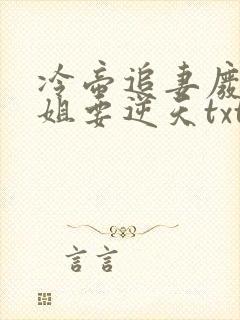 冷帝追妻废
姐要逆天txt
言言